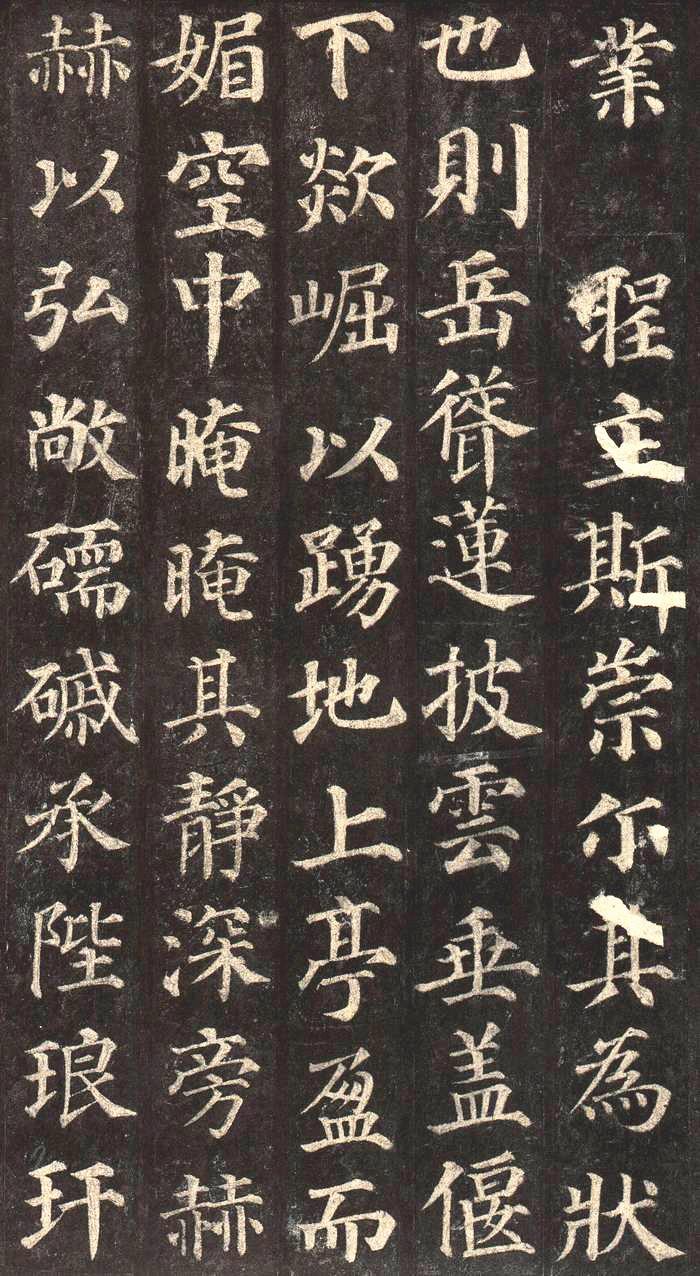 業 聖主斯崇尓其為狀
也則岳聳蓮披雲垂盖偃
下欻崛以踴地上亭盈而
媚空中晻晻其靜深旁赫
赫以弘敞礝磩承陛琅玕